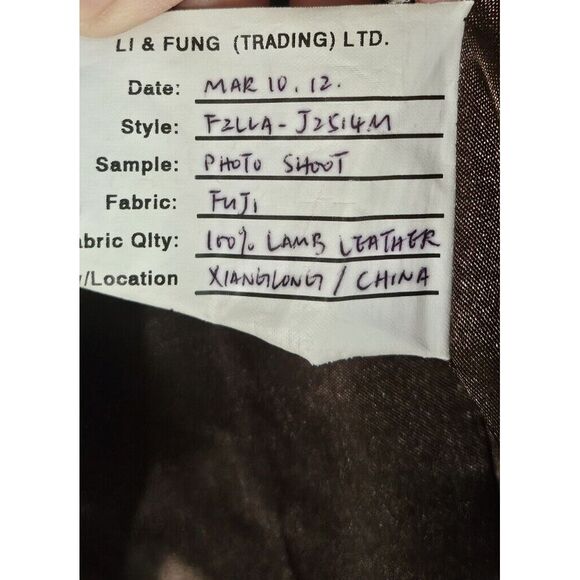 LI & FUNG (TRADING) LTD.
Date: MAR 10. 12.
Style: F2LLA - J2514M
Sample: PHOTO SHOOT
Fabric: FUJI
abric Qlty: 100% LAMB LEATHER
y/Location XIANGLONG / CHINA